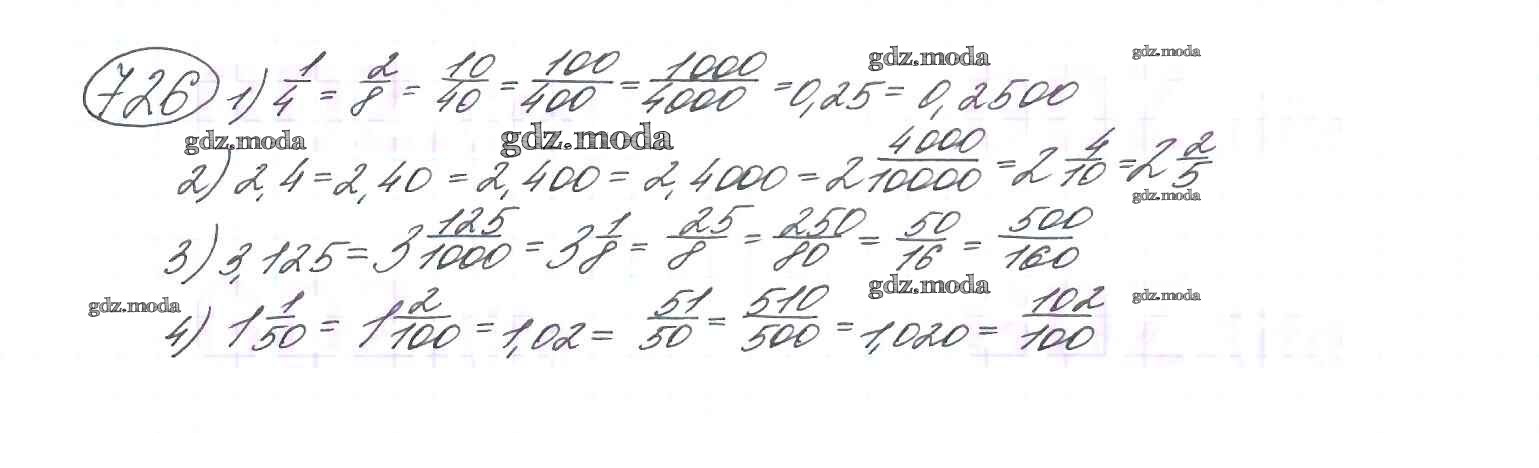 gdz.moda gdz.moda
726 1) 1/4 = 2/8 = 10/40 = 100/400 = 1000/4000 = 0,25 = 0,2500
gdz.moda gdz.moda
2) 2,4 = 2,40 = 2,400 = 2,4000 = 2 4000/10000 = 2 4/10 = 2 2/5
gdz.moda
3) 3,125 = 3 125/1000 = 3 1/8 = 25/8 = 250/80 = 50/16 = 500/160
gdz.moda gdz.moda gdz.moda
4) 1 1/50 = 1 2/100 = 1,02 = 51/50 = 510/500 = 1,020 = 102/100